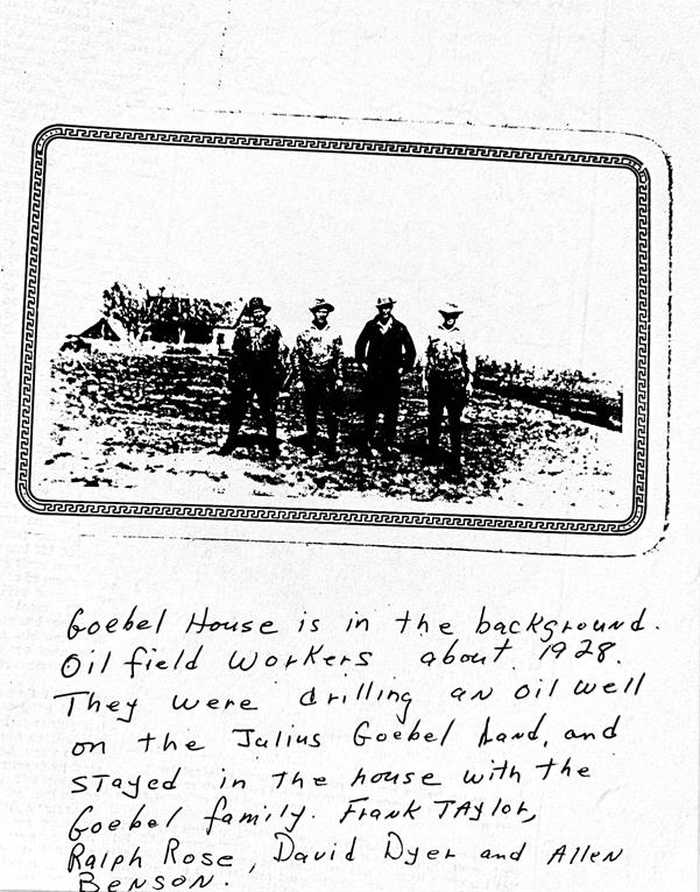 Goebel House is in the background.
Oil field workers about 1928.
They were drilling an oil well
on the Julius Goebel Land, and
stayed in the house with the
Goebel family. Frank Taylor,
Ralph Rose, David Dyer and Allen
Benson.